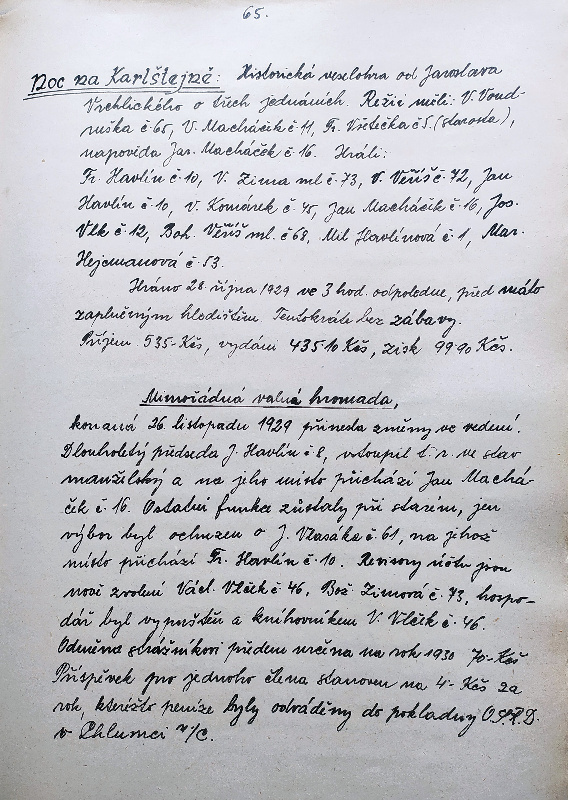 65.
Noc na Karlštejně: Historická veselohra od Jaroslava
Vrchlického o třech jednáních. Režii měli: V. Vond-
ruška č. 65, V. Macháčik č. 11, Fr. Všetečka č. 5. (starosta),
napovídá Jar. Macháček č. 16. Hráli:
Fr. Havlín č. 10, V. Zima ml č. 73, V. Veříš č. 72, Jan
Havlín č. 10, V. Komárek č. 45, Jan Macháčik č. 16, Jos.
Vlk č. 12, Boh. Veříš ml. č. 68, Mil Havlínová č. 1, Mar.
Hejcmanová č. 53.
Hráno 28. října 1929 ve 3 hod. odpoledne, před málo
zaplněným hledištěm Tentokráte bez zábavy.
Příjem 535-Kčs, vydání 435 10 Kčs, zisk 99.90 Kčs.
Mimořádná valná hromada,
konaná 26. listopadu 1929 přinesla změny ve vedení.
Dlouholetý předseda J. Havlín č. 8, vstoupil t. r. ve stav
manželský a na jeho místo přichází Jan Machá-
ček č. 16. Ostatní funkce zůstaly při starém, jen
výbor byl ochuzen o J. Vlasáka č. 61, na jehož
místo přichází Fr. Havlín č. 10. Revisory účtu jsou
nově zvoleni Václ. Vlček č. 46, Bož. Zimová č. 73, hospo-
dář byl vypuštěn a knihovníkem V. Vlček č. 46.
Odměna strážníkovi předem určena na rok 1930 70-Kčs
Příspěvek pro jednoho člena stanoven na 4-Kčs za
rok, kteréžto peníze byly odváděny do pokladny
v Chlumci n/C.